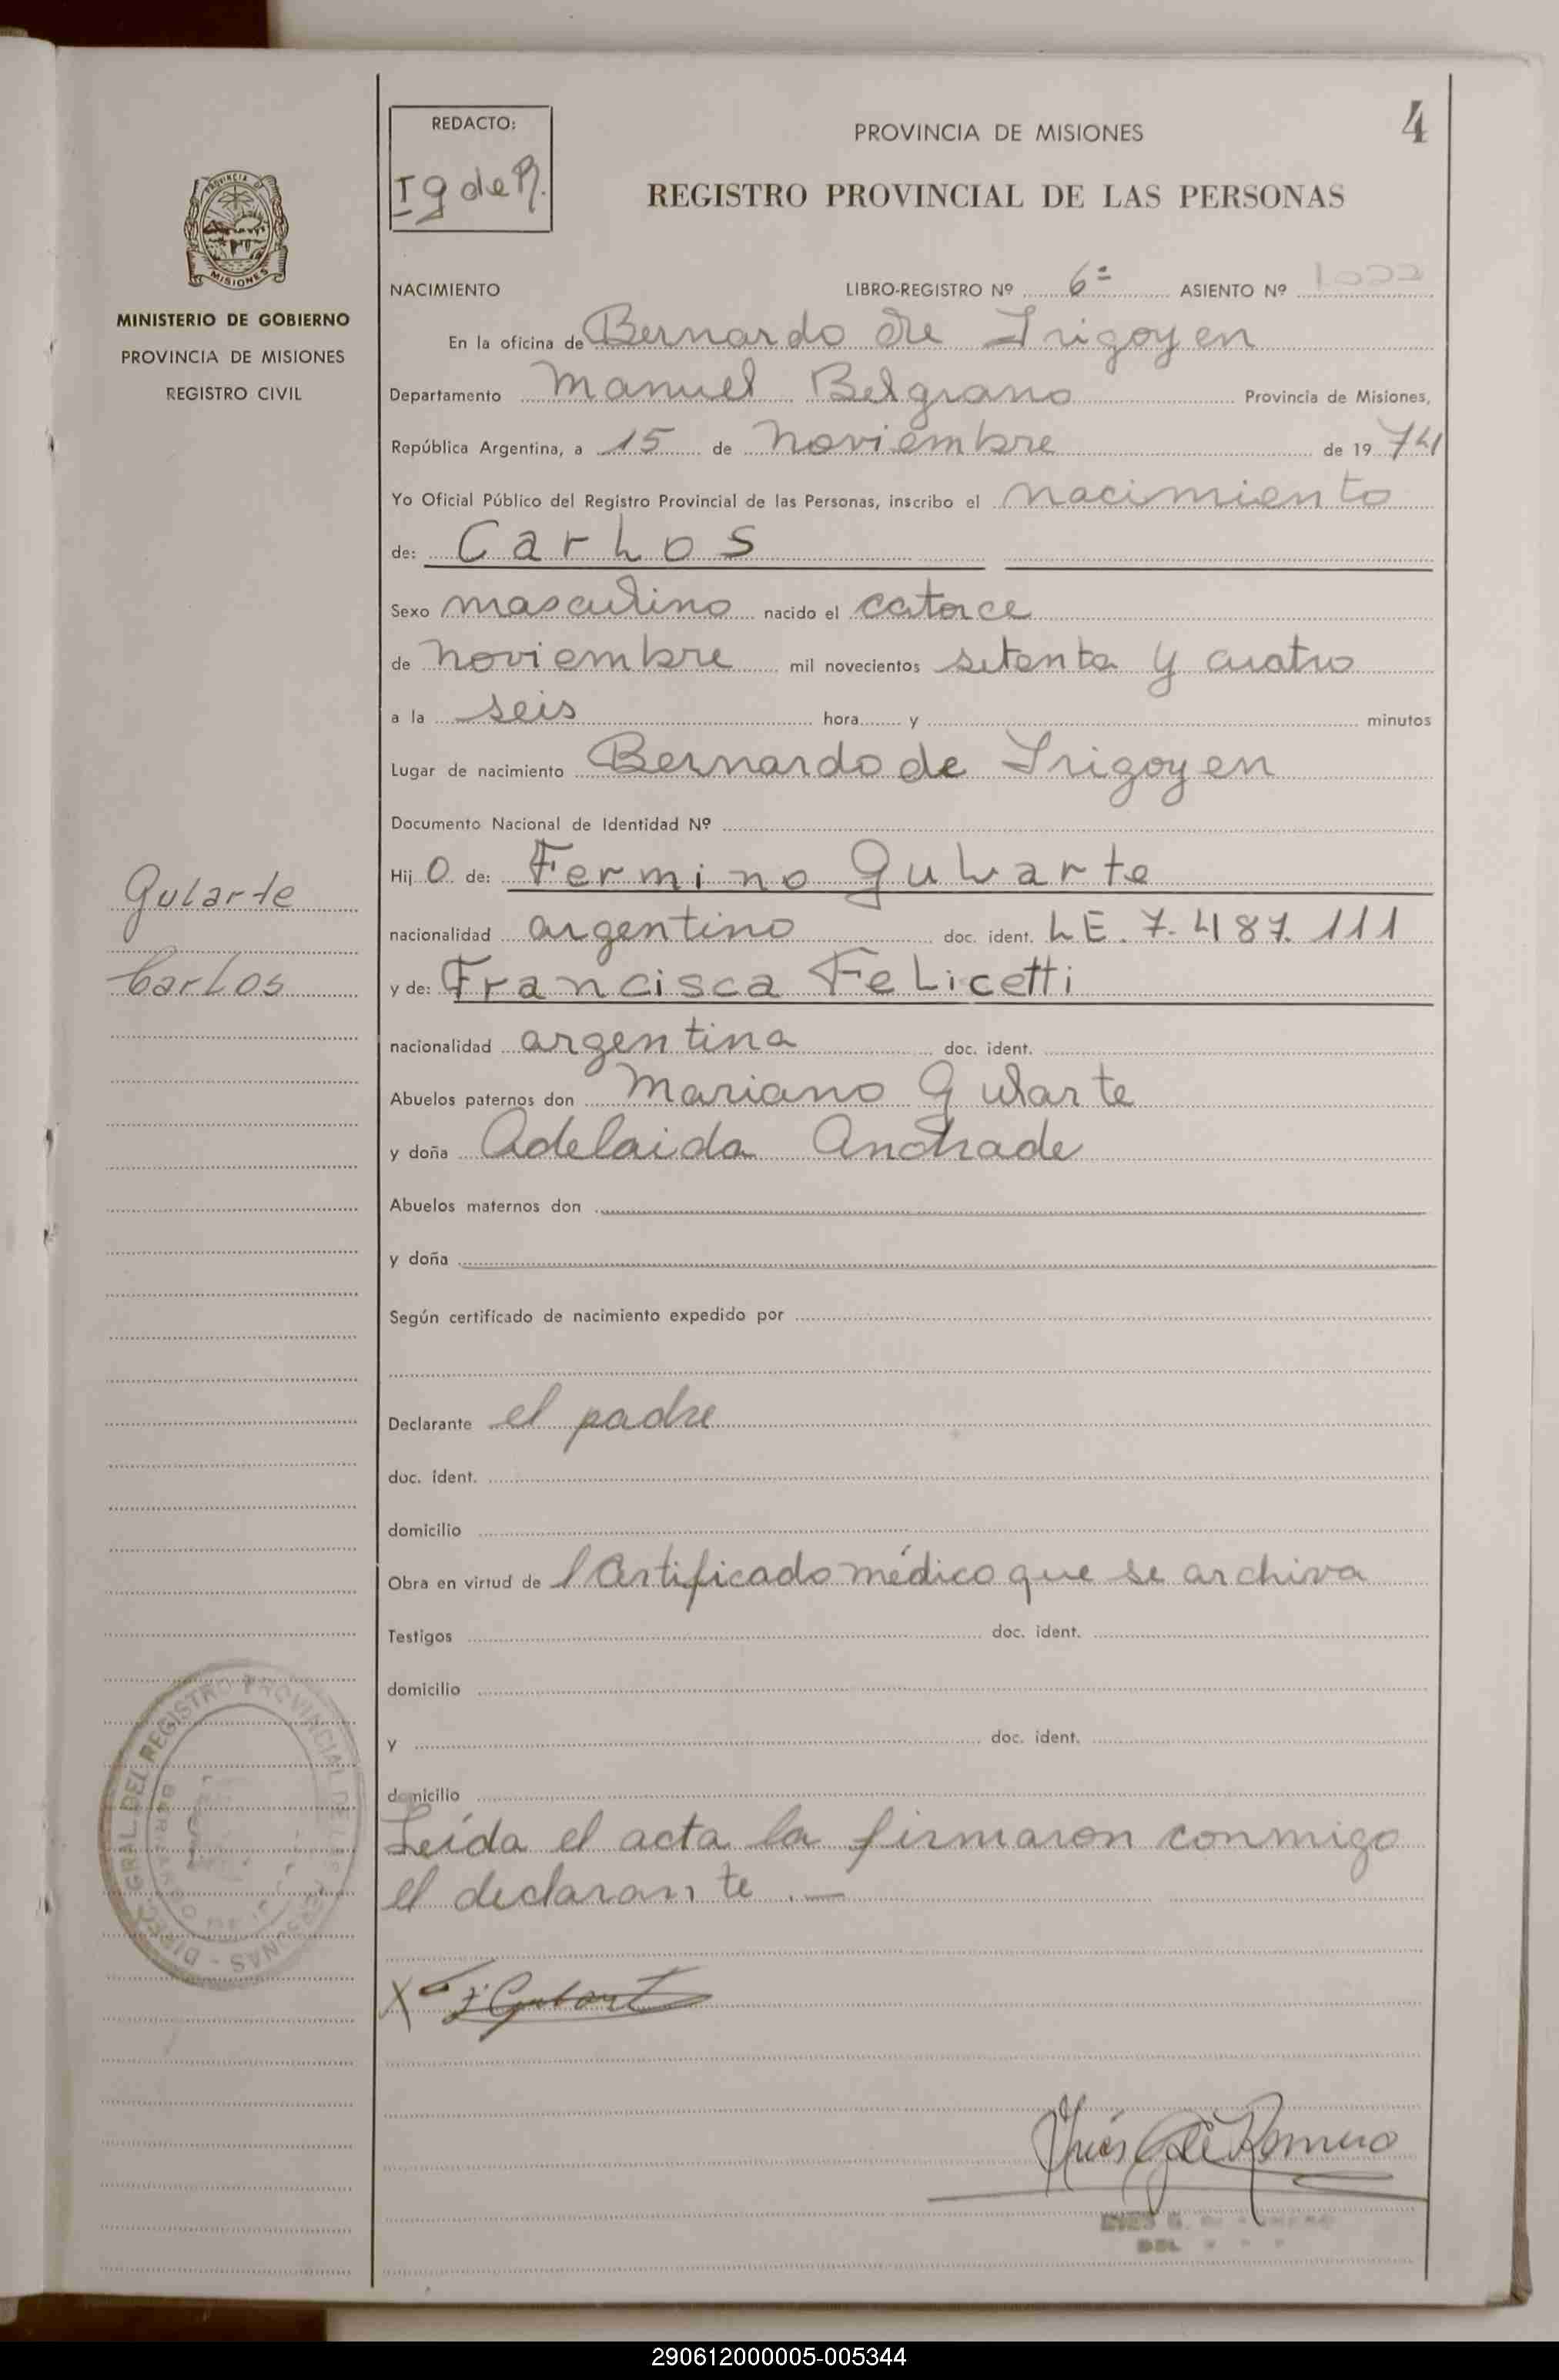 4
REDACTO:
I g de R.
PROVINCIA DE MISIONES
REGISTRO PROVINCIAL DE LAS PERSONAS
PROVINCIA DE
MISIONES
MINISTERIO DE GOBIERNO
PROVINCIA DE MISIONES
REGISTRO CIVIL
NACIMIENTO LIBRO-REGISTRO Nº 6º ASIENTO Nº 1022
En la oficina de Bernardo de Irigoyen
Departamento Manuel Belgrano Provincia de Misiones,
República Argentina, a 15 de Noviembre de 19 74
Yo Oficial Público del Registro Provincial de las Personas, inscribo el nacimiento
de: Carlos
Sexo masculino nacido el catorce
de noviembre mil novecientos setenta y cuatro
a la seis hora y minutos
Lugar de nacimiento Bernardo de Irigoyen
Documento Nacional de Identidad Nº
Hij o de: Fermino Gularte
nacionalidad argentino doc. ident. LE. 7.487.111
y de: Francisca Felicetti
nacionalidad argentina doc. ident.
Abuelos paternos don Mariano Gularte
y doña Adelaida Andrade
Abuelos maternos don
y doña
Según certificado de nacimiento expedido por
Declarante el padre
doc. ident.
domicilio
Obra en virtud de l certificado médico que se archiva
Testigos doc. ident.
domicilio
y doc. ident.
domicilio
Leída el acta la firmaron conmigo
el declarante .—
X F Gularte
Inés G de Romero
Gularte
Carlos
DIREC. GRAL. DEL REGISTRO PROVINCIAL DE LAS PERSONAS -
290612000005-005344